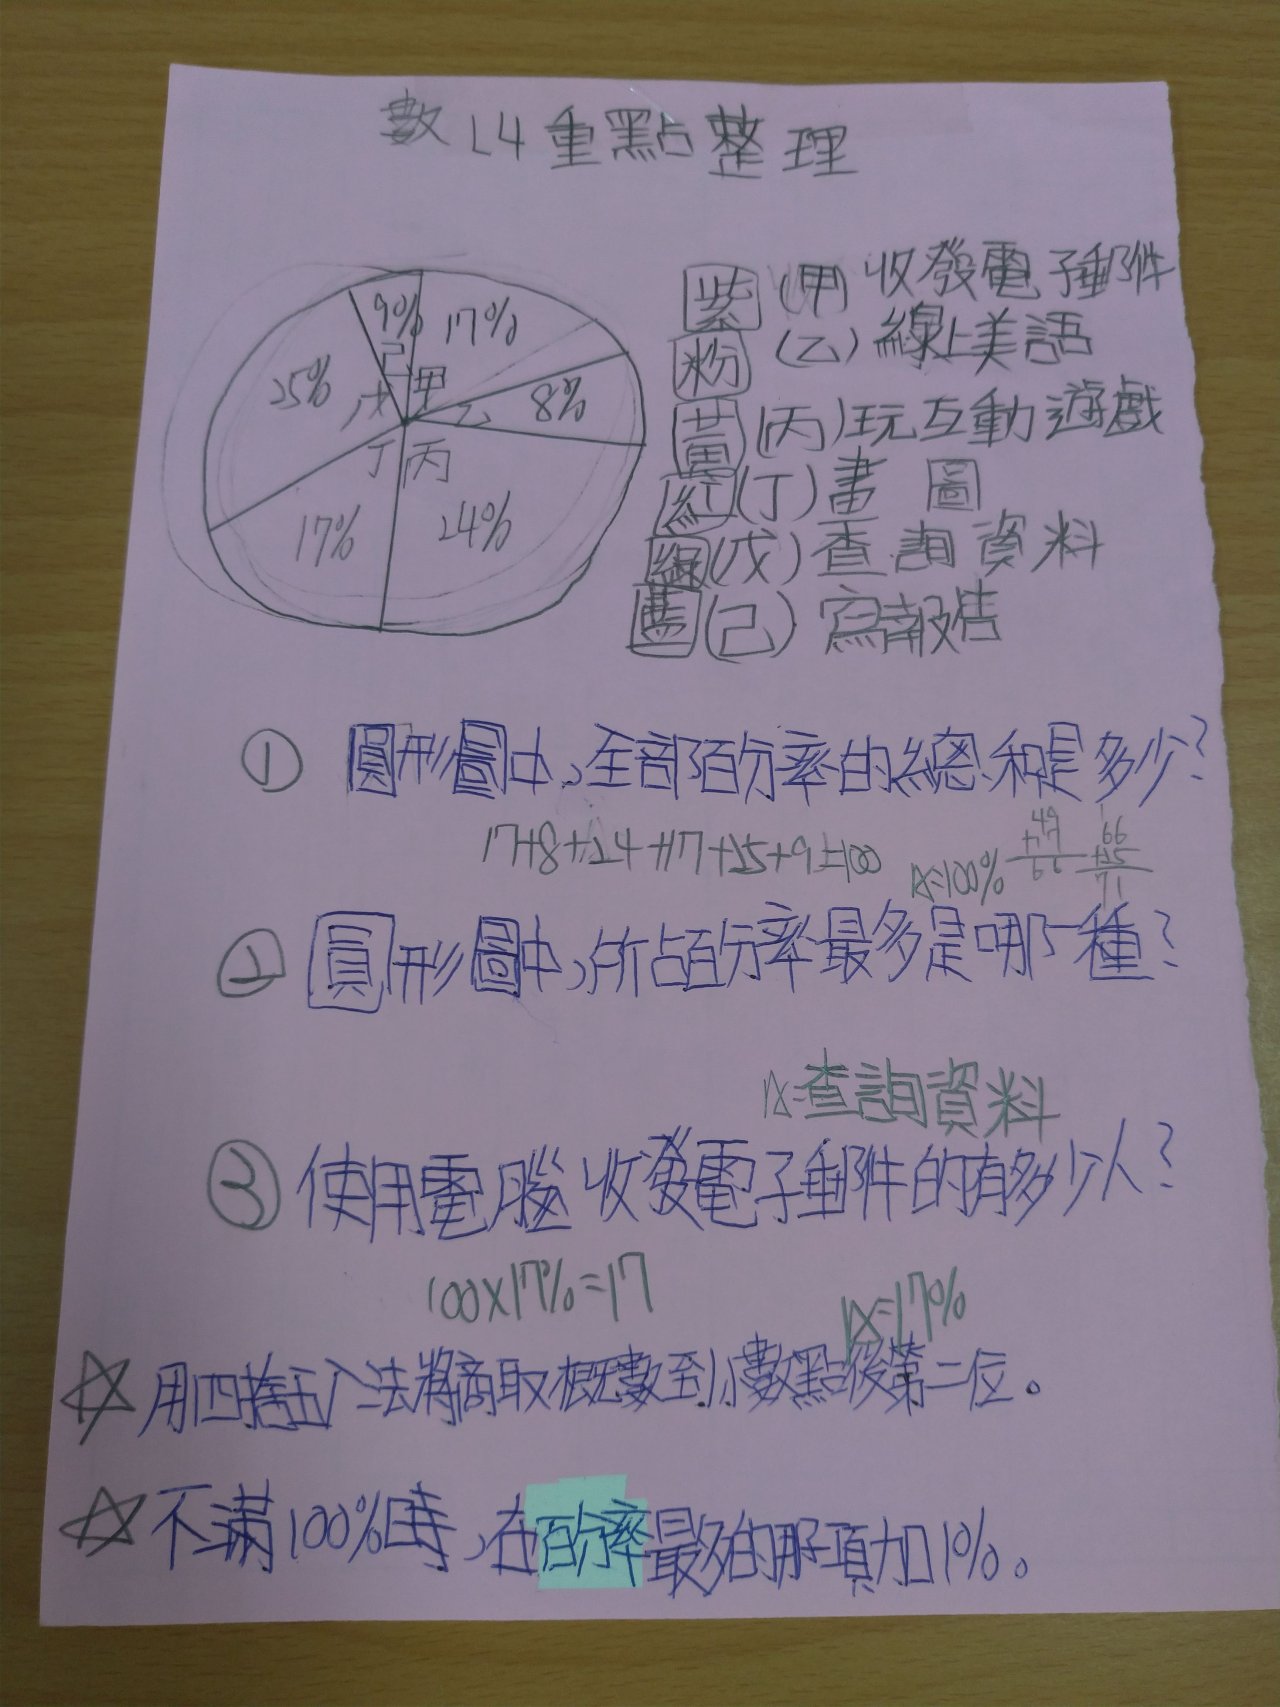 數L4重點整理
9% 17%
25% 己 甲
戊 乙 8%
丁 丙
17% 24%
紫 (甲) 收發電子郵件
粉 (乙) 線上美語
黃 (丙) 玩互動遊戲
紅 (丁) 畫圖
綠 (戊) 查詢資料
藍 (己) 寫報告
① 圓形圖中,全部百分率的總和是多少?
17+8+24+17+25+9=100 A=100%
49
+17
66
66
+25
71
② 圓形圖中,所占百分率最多是哪一種?
A:查詢資料
③ 使用電腦收發電子郵件的有多少人?
100×17%=17 A=17%
☆用四捨五入法將商取概數至小數點後第二位。
☆不滿100%時,在百分率最多的那項加1%。